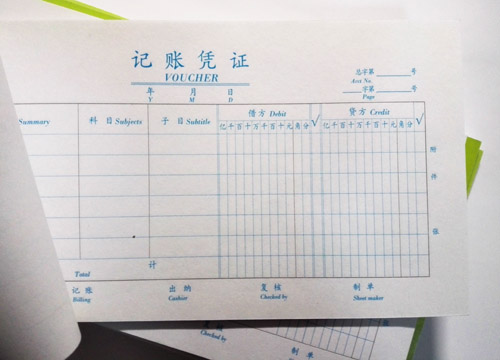 记账凭证
VOUCHER
总字第 号
Acct No.
字第 号
Page
年 月 日
Y M D
Summary 科目 Subjects 子目 Subtitle 借方 Debit √ 贷方 Credit √
亿千百十万千百十元角分 亿千百十万千百十元角分
附
件
张
Total 计
记账 出纳 复核 制单
Billing Cashier Checked by Sheet maker
复核
Checked by
制单